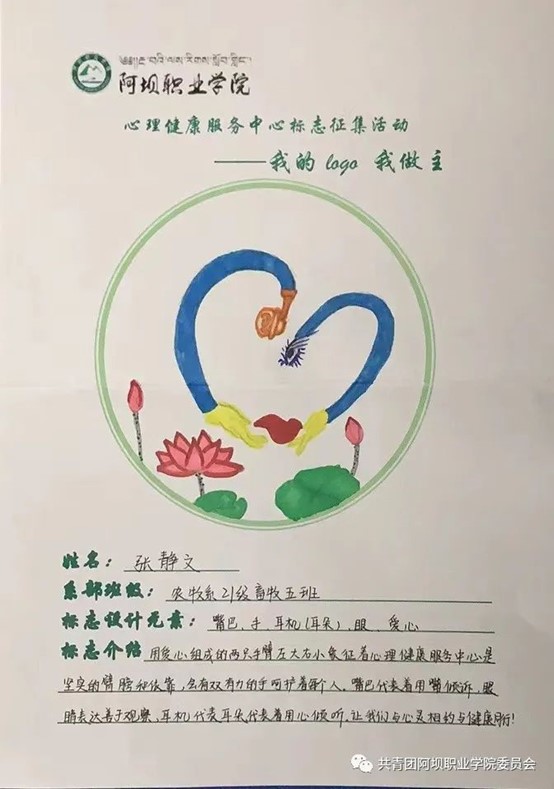 阿坝职业学院
心理健康服务中心标志征集活动
——我的 logo 我做主
姓名：张静文
系部班级：农牧系21级畜牧五班
标志设计元素：嘴巴、手、耳机（耳朵）、眼、爱心
标志介绍 用爱心组成的两只手臂左大右小象征着心理健康服务中心是
坚实的臂膀和依靠，会有双有力的手呵护着每个人。嘴巴代表着用嘴倾诉，眼
睛表达善于观察，耳机代表耳朵代表着用心倾听。让我们与心灵相约与健康同行！
共青团阿坝职业学院委员会